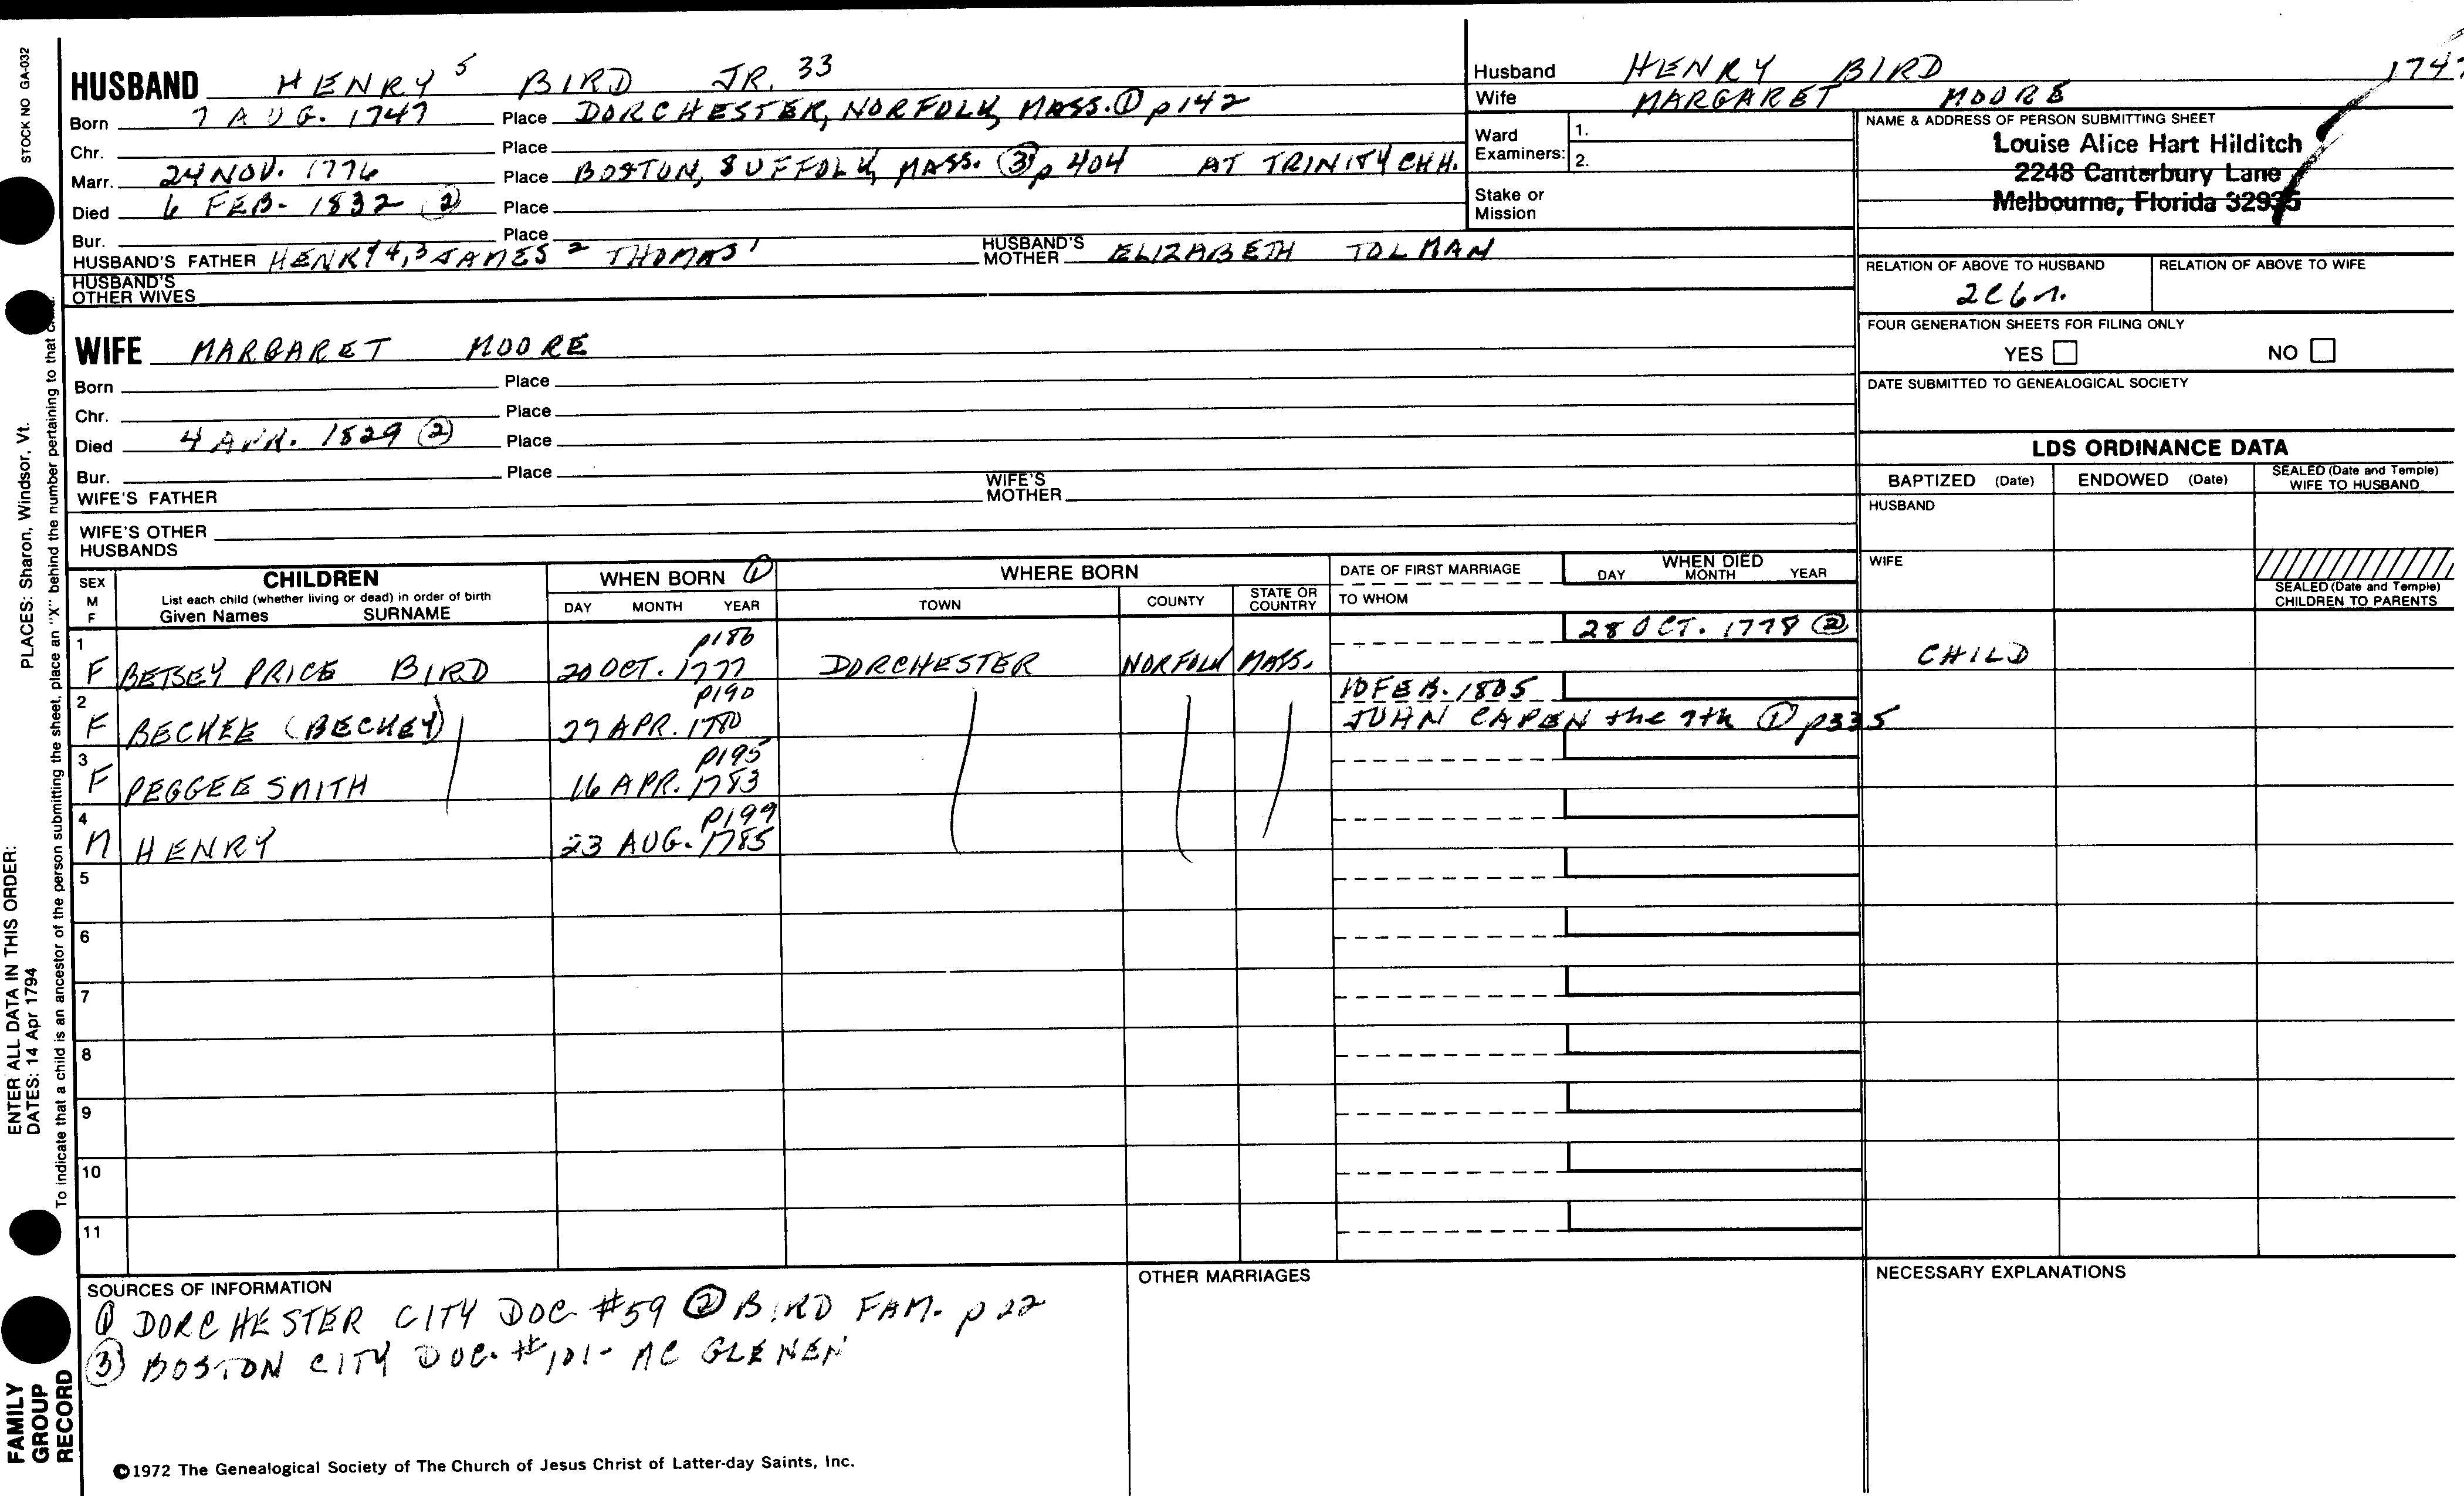 STOCK NO GA-032
HUSBAND HENRY 5 BIRD JR. 33
Born 7 AUG. 1747 Place DORCHESTER, NORFOLK, MASS. ① p 142
Chr. Place
Marr. 24 NOV. 1776 Place BOSTON, SUFFOLK, MASS. ③ p 404 AT TRINITY CHH.
Died 6 FEB. 1832 ② Place
Bur. Place
HUSBAND'S FATHER HENRY 4,3 JAMES 2 THOMAS 1 HUSBAND'S MOTHER ELIZABETH TOLMAN
HUSBAND'S OTHER WIVES
Husband HENRY BIRD 1747
Wife MARGARET MOORE
Ward Examiners: 1.
2.
Stake or Mission
NAME & ADDRESS OF PERSON SUBMITTING SHEET
Louise Alice Hart Hilditch
2248 Canterbury Lane
Melbourne, Florida 32935
RELATION OF ABOVE TO HUSBAND RELATION OF ABOVE TO WIFE
2C6r.
FOUR GENERATION SHEETS FOR FILING ONLY
YES NO
DATE SUBMITTED TO GENEALOGICAL SOCIETY
WIFE MARGARET MOORE
Born Place
Chr. Place
Died 4 APR. 1829 ② Place
Bur. Place
WIFE'S FATHER WIFE'S MOTHER
WIFE'S OTHER HUSBANDS
LDS ORDINANCE DATA
BAPTIZED (Date) ENDOWED (Date) SEALED (Date and Temple) WIFE TO HUSBAND
HUSBAND
WIFE
SEALED (Date and Temple) CHILDREN TO PARENTS
SEX M F CHILDREN WHEN BORN ① WHERE BORN DATE OF FIRST MARRIAGE WHEN DIED
List each child (whether living or dead) in order of birth
Given Names SURNAME DAY MONTH YEAR TOWN COUNTY STATE OR COUNTRY TO WHOM DAY MONTH YEAR
1 p186 28 OCT. 1778 ②
F BETSEY PRICE BIRD 20 OCT. 1777 DORCHESTER NORFOLK MASS. CHILD
2 p190 10 FEB. 1805
F BECKEE (BECKEY) 27 APR. 1780 JOHN CAPEN the 7th ① p335
3 p195
F PEGGEE SMITH 16 APR. 1783
4 p199
M HENRY 23 AUG. 1785
5
6
7
8
9
10
11
SOURCES OF INFORMATION
① DORCHESTER CITY DOC #59 ② BIRD FAM. p 22
③ BOSTON CITY DOC. #101- MC GLENEN
OTHER MARRIAGES
NECESSARY EXPLANATIONS
©1972 The Genealogical Society of The Church of Jesus Christ of Latter-day Saints, Inc.
ENTER ALL DATA IN THIS ORDER:
DATES: 14 Apr 1794
PLACES: Sharon, Windsor, Vt.
To indicate that a child is an ancestor of the person submitting the sheet, place an "X" behind the number pertaining to that
FAMILY
GROUP
RECORD